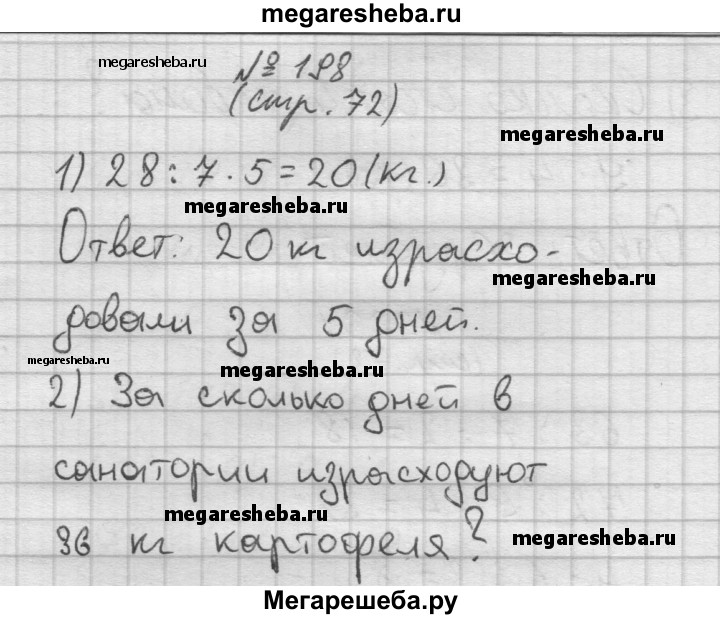 megaresheba.ru
megaresheba.ru
№ 198
(стр. 72)
megaresheba.ru
1) 28 : 7 · 5 = 20 (кг.)
megaresheba.ru
Ответ: 20 кг израсхо-
megaresheba.ru
довали за 5 дней.
megaresheba.ru
megaresheba.ru
2) За сколько дней в
санатории израсходуют
megaresheba.ru
36 кг картофеля?
megaresheba.ru
Мегарешеба.ру